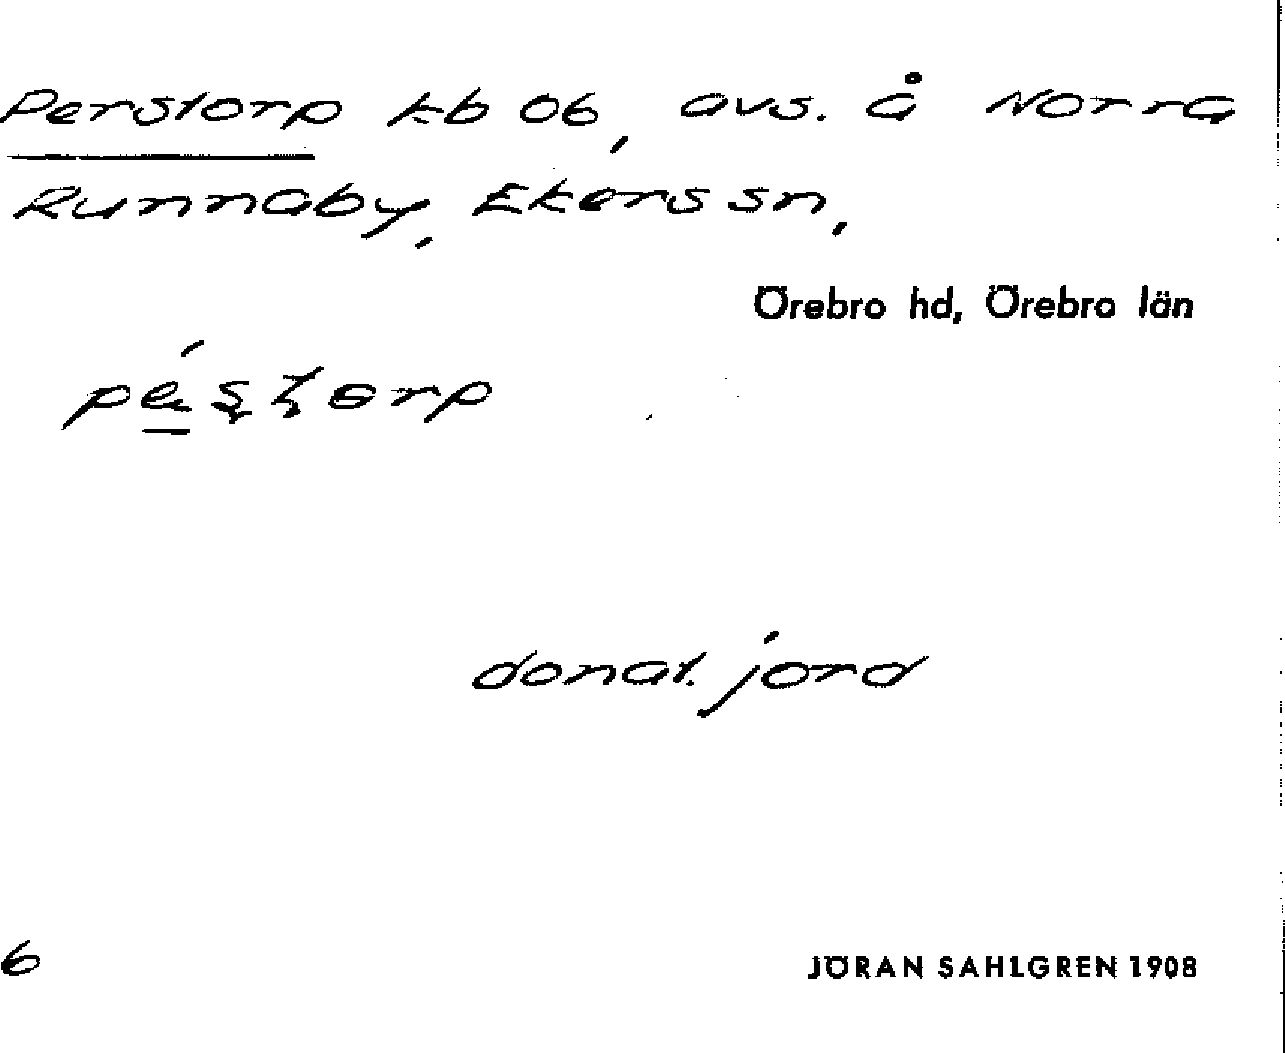 Perstorp kb 06, avs. å Norra
Runnaby, Ekers sn,
Örebro hd, Örebro län
donat. jord
6
JÖRAN SAHLGREN 1908